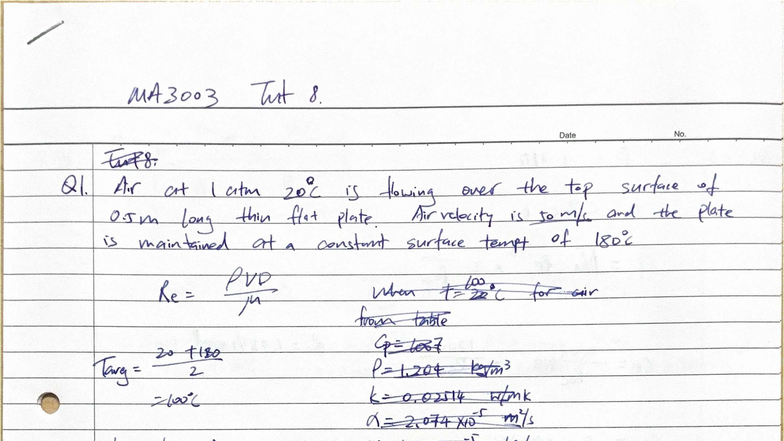 MA3003 Tut 8.
Date No.
Tut 8.
Q1. Air at 1 atm 20°C is flowing over the top surface of
0.5m long thin flat plate. Air velocity is 50 m/s and the plate
is maintained at a constant surface tempt of 180°C
Re = ρVD / μ
when T = 100°C for air
from table
Cp = 1007
Tavg = 20 + 180 / 2
ρ = 1.204 kg/m³
= 100°C
k = 0.02514 w/mk
α = 2.074 x10⁻⁵ m²/s